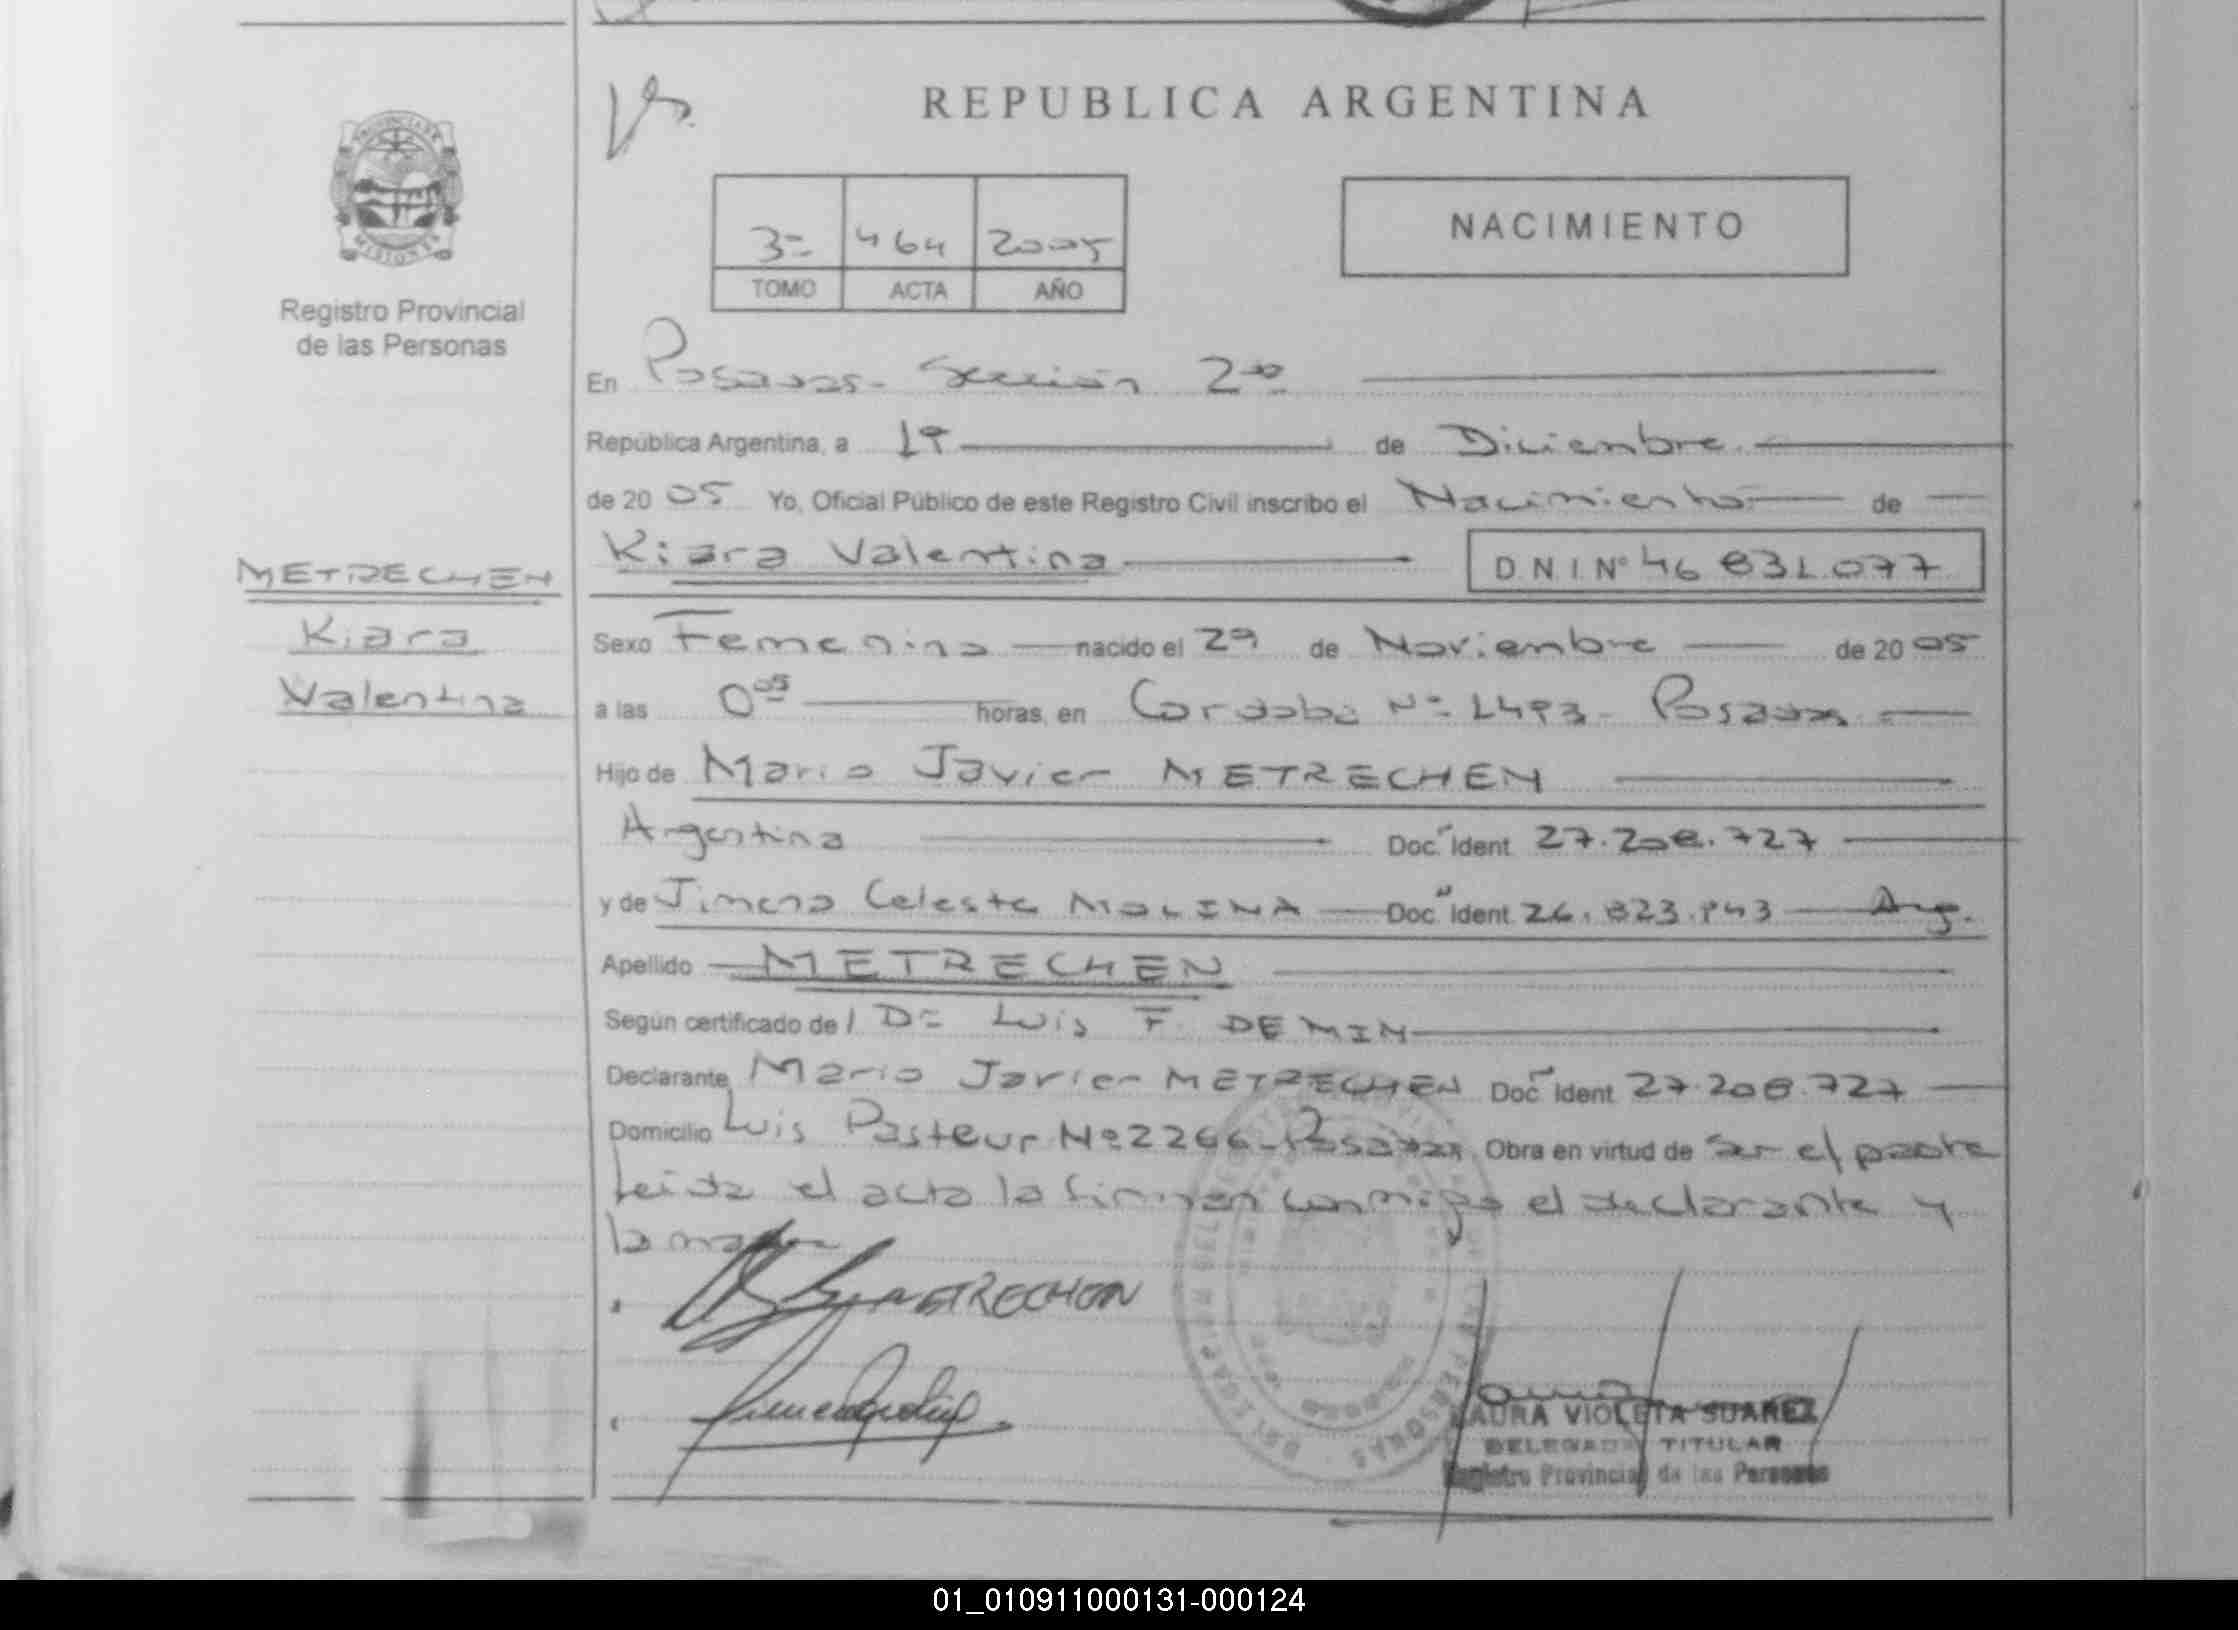 REPUBLICA ARGENTINA
PROVINCIA DE
MISIONES
Registro Provincial
de las Personas
3º 464 2005
TOMO ACTA AÑO
NACIMIENTO
En Posadas - Sección 2da
República Argentina, a 1º de Diciembre
de 2005 Yo, Oficial Público de este Registro Civil inscribo el Nacimiento de
Kiara Valentina DNI Nº 46 831.077
METRECHEN
Kiara
Valentina
Sexo Femenino nacido el 29 de Noviembre de 2005
a las 0 05 horas, en Cordoba Nº 1493 - Posadas
Hijo de Mario Javier METRECHEN
Argentina Doc. Ident 27.208.727
y de Jimena Celeste MOLINA Doc. Ident 26.823.943 Arg.
Apellido METRECHEN
Según certificado de / Dr Luis F. DEMIN
Declarante Mario Javier METRECHEN Doc. Ident 27.208.727
Domicilio Luis Pasteur Nº 2266 - Posadas Obra en virtud de ser el padre
Leida el acta la firman conmigo el declarante y
la madre
METRECHEN
LAURA VIOLETA SUAREZ
DELEGADA TITULAR
Registro Provincial de las Personas
01_010911000131-000124